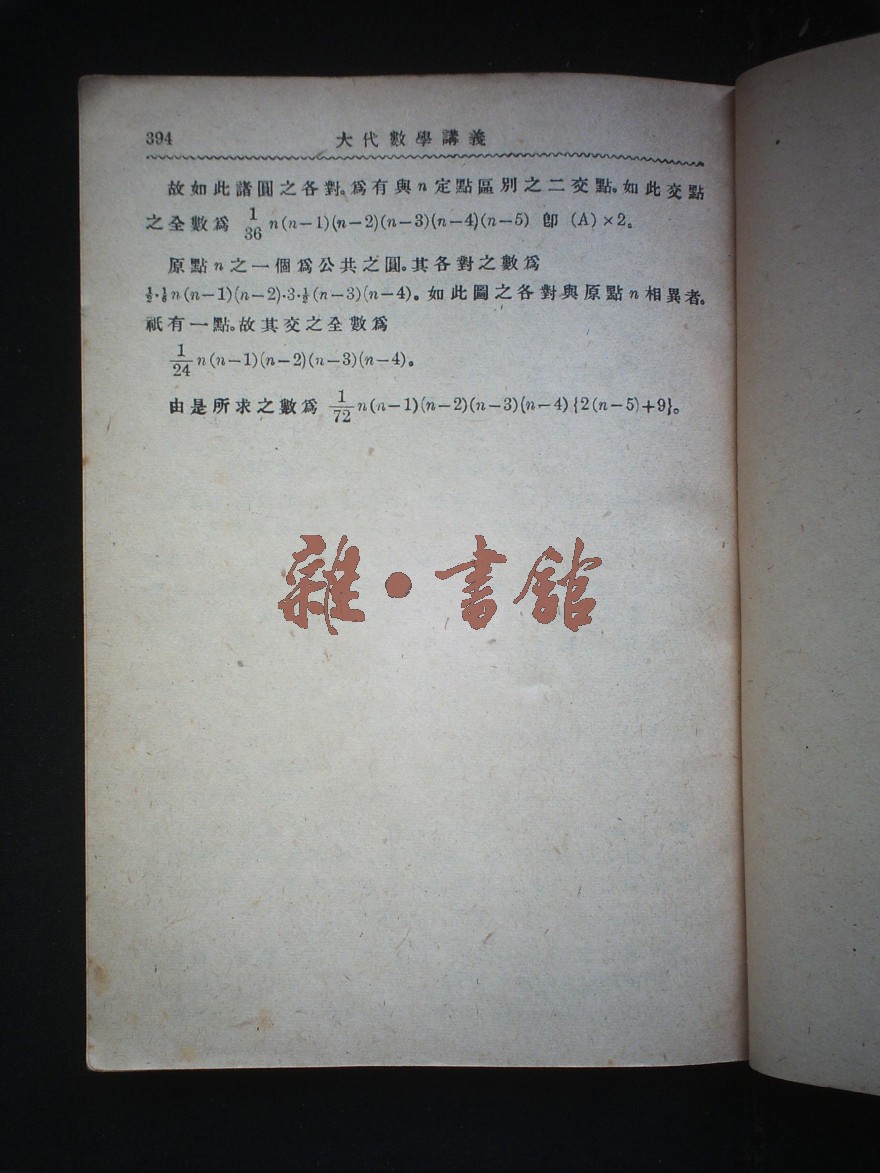 394 大代數學講義
故如此諸圓之各對。爲有與n定點區別之二交點。如此交點
之全數爲 1/36 n(n−1)(n−2)(n−3)(n−4)(n−5) 卽 (A)×2。
原點n之一個爲公共之圓。其各對之數爲
½·⅙n(n−1)(n−2)·3·½(n−3)(n−4)。如此圖之各對與原點n相異者。
祇有一點。故其交之全數爲
1/24 n(n−1)(n−2)(n−3)(n−4)。
由是所求之數爲 1/72 n(n−1)(n−2)(n−3)(n−4){2(n−5)+9}。
雜·書館